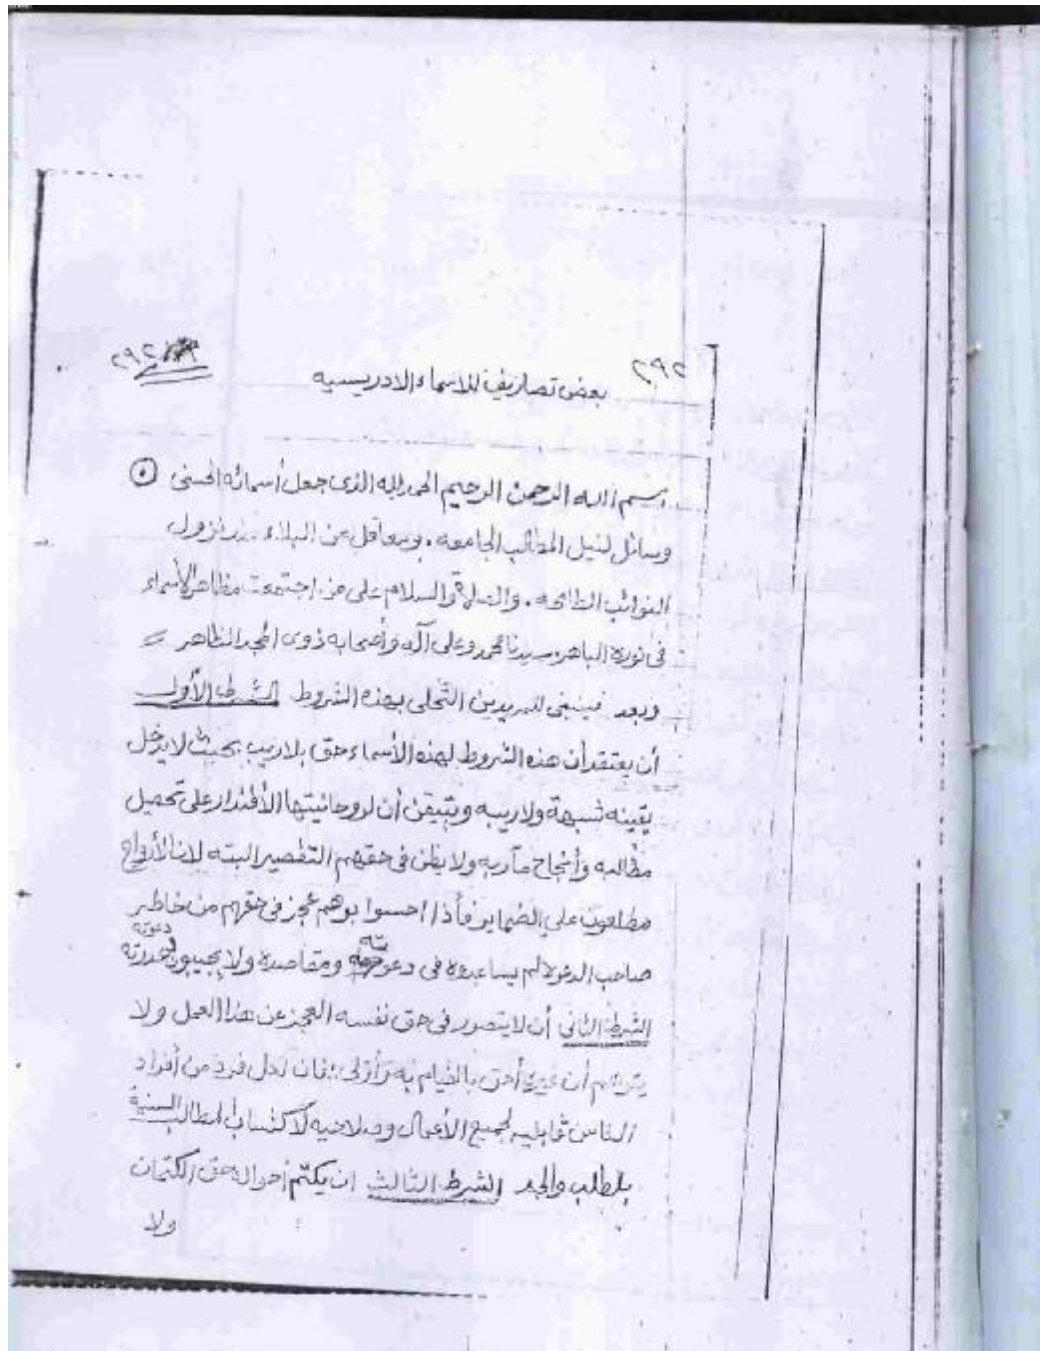 ٢٩٢
٢٩٢
بعض تصاريف للاسماء الادريسيه
بسم الله الرحمن الرحيم الحمد لله الذى جعل أسمائه الحسنى
وسائل لنيل المطالب الجامعه . ومعاقل عن البلاء نزول
النوائب . والصلاة والسلام على من اجتمعت مظاهر الأسماء
فى نوره الباهر سيدنا محمد وعلى آله وأصحابه ذوى المجد الظاهر =
وبعد فينبغى للمريدين التحلى بهذه الشروط الشرط الأول
أن يعتقد أن هذه الشروط لهذه الأسماء حق بلا ريب بحيث لا يدخل
يقينه شبهة ولا ريبه ويتيقن أن لروحانيتها الأقتدار على تحصيل
مطالبه وأنجاح مآربه ولا يظن فى حقهم التقصير البته لان الأرواح
مطلعون على الضماير فأذا احسوا بوهم عجز فى حقهم من خاطر
صاحب الدعوة لم يساعدوه فى دعوته ومقاصده ولا يجيبون دعوته
الشرط الثانى أن لا يتصور فى حق نفسه العجز عن هذا العمل ولا
يتوهم أن غيره أحق بالقيام به وأولى فان لكل فرد من أفراد
الناس قابليه لجميع الأعمال وصلاحيه لأكتساب المطالب السنية
بالطلب والجد الشرط الثالث ان يكتم أحواله حق الكتمان
ولا